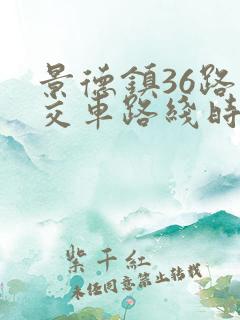 景德鎮36路
交車路綫時
紫千紅
未经同意禁止转载